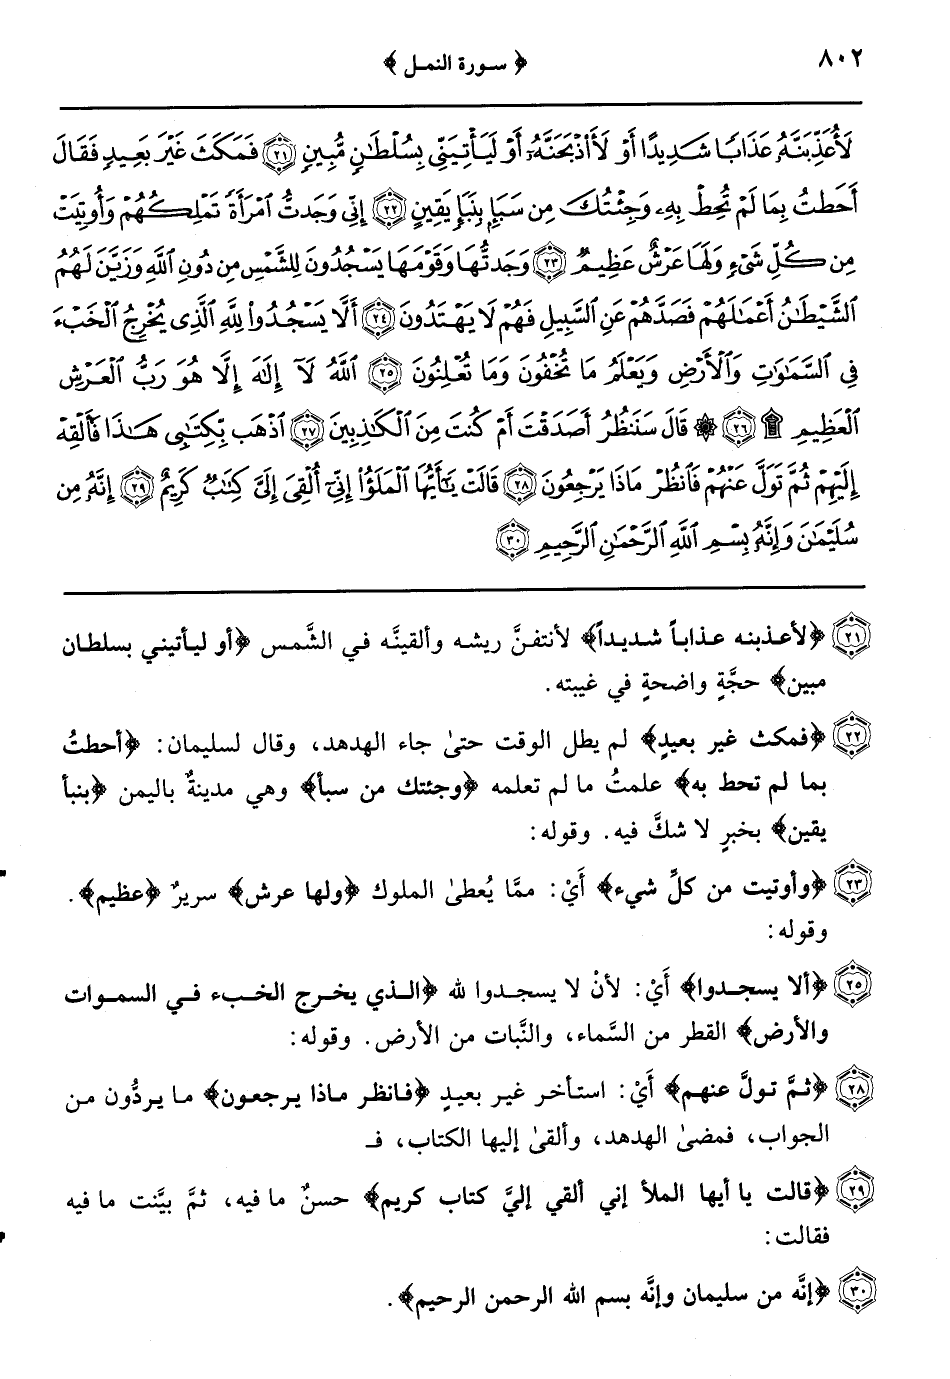 ٨٠٢
﴿ سورة النمل ﴾
لَأُعَذِّبَنَّهُۥ عَذَابًا شَدِيدًا أَوْ لَأَاْذْبَحَنَّهُۥٓ أَوْ لَيَأْتِيَنِّى بِسُلْطَٰنٍ مُّبِينٍ ٢١ فَمَكَثَ غَيْرَ بَعِيدٍ فَقَالَ
أَحَطتُ بِمَا لَمْ تُحِطْ بِهِۦ وَجِئْتُكَ مِن سَبَإٍ بِنَبَإٍ يَقِينٍ ٢٢ إِنِّى وَجَدتُّ ٱمْرَأَةً تَمْلِكُهُمْ وَأُوتِيَتْ
مِن كُلِّ شَىْءٍ وَلَهَا عَرْشٌ عَظِيمٌ ٢٣ وَجَدتُّهَا وَقَوْمَهَا يَسْجُدُونَ لِلشَّمْسِ مِن دُونِ ٱللَّهِ وَزَيَّنَ لَهُمُ
ٱلشَّيْطَٰنُ أَعْمَٰلَهُمْ فَصَدَّهُمْ عَنِ ٱلسَّبِيلِ فَهُمْ لَا يَهْتَدُونَ ٢٤ أَلَّا يَسْجُدُوا۟ لِلَّهِ ٱلَّذِى يُخْرِجُ ٱلْخَبْءَ
فِى ٱلسَّمَٰوَٰتِ وَٱلْأَرْضِ وَيَعْلَمُ مَا تُخْفُونَ وَمَا تُعْلِنُونَ ٢٥ ٱللَّهُ لَآ إِلَٰهَ إِلَّا هُوَ رَبُّ ٱلْعَرْشِ
ٱلْعَظِيمِ ۩ ٢٦ ۞ قَالَ سَنَنظُرُ أَصَدَقْتَ أَمْ كُنتَ مِنَ ٱلْكَٰذِبِينَ ٢٧ ٱذْهَب بِّكِتَٰبِى هَٰذَا فَأَلْقِهْ
إِلَيْهِمْ ثُمَّ تَوَلَّ عَنْهُمْ فَٱنظُرْ مَاذَا يَرْجِعُونَ ٢٨ قَالَتْ يَٰٓأَيُّهَا ٱلْمَلَؤُا۟ إِنِّىٓ أُلْقِىَ إِلَىَّ كِتَٰبٌ كَرِيمٌ ٢٩ إِنَّهُۥ مِن
سُلَيْمَٰنَ وَإِنَّهُۥ بِسْمِ ٱللَّهِ ٱلرَّحْمَٰنِ ٱلرَّحِيمِ ٣٠
٢١ ﴿لأعذبنه عذاباً شديداً﴾ لأنتفنَّ ريشه وألقينَّه في الشَّمس ﴿أو ليأتيني بسلطان
مبين﴾ حجَّةٍ واضحةٍ في غيبته.
٢٢ ﴿فمكث غير بعيدٍ﴾ لم يطل الوقت حتىٰ جاء الهدهد، وقال لسليمان: ﴿أحطتُ
بما لم تحط به﴾ علمتُ ما لم تعلمه ﴿وجئتك من سبأ﴾ وهي مدينةٌ باليمن ﴿بنبأ
يقين﴾ بخبرٍ لا شكَّ فيه. وقوله:
٢٣ ﴿وأوتيت من كلِّ شيء﴾ أَيْ: ممَّا يُعطىٰ الملوك ﴿ولها عرش﴾ سريرٌ ﴿عظيم﴾.
وقوله:
٢٥ ﴿ألا يسجدوا﴾ أَيْ: لأنْ لا يسجدوا لله ﴿الذي يخرج الخبء في السموات
والأرض﴾ القطر من السَّماء، والنَّبات من الأرض. وقوله:
٢٨ ﴿ثمَّ تولَّ عنهم﴾ أَيْ: استأخر غير بعيدٍ ﴿فانظر ماذا يرجعون﴾ ما يردُّون من
الجواب، فمضىٰ الهدهد، وألقىٰ إليها الكتاب، فـ
٢٩ ﴿قالت يا أيها الملأ إني ألقي إليَّ كتاب كريم﴾ حسنٌ ما فيه، ثمَّ بيَّنت ما فيه
فقالت:
٣٠ ﴿إنَّه من سليمان وإنَّه بسم الله الرحمن الرحيم﴾.